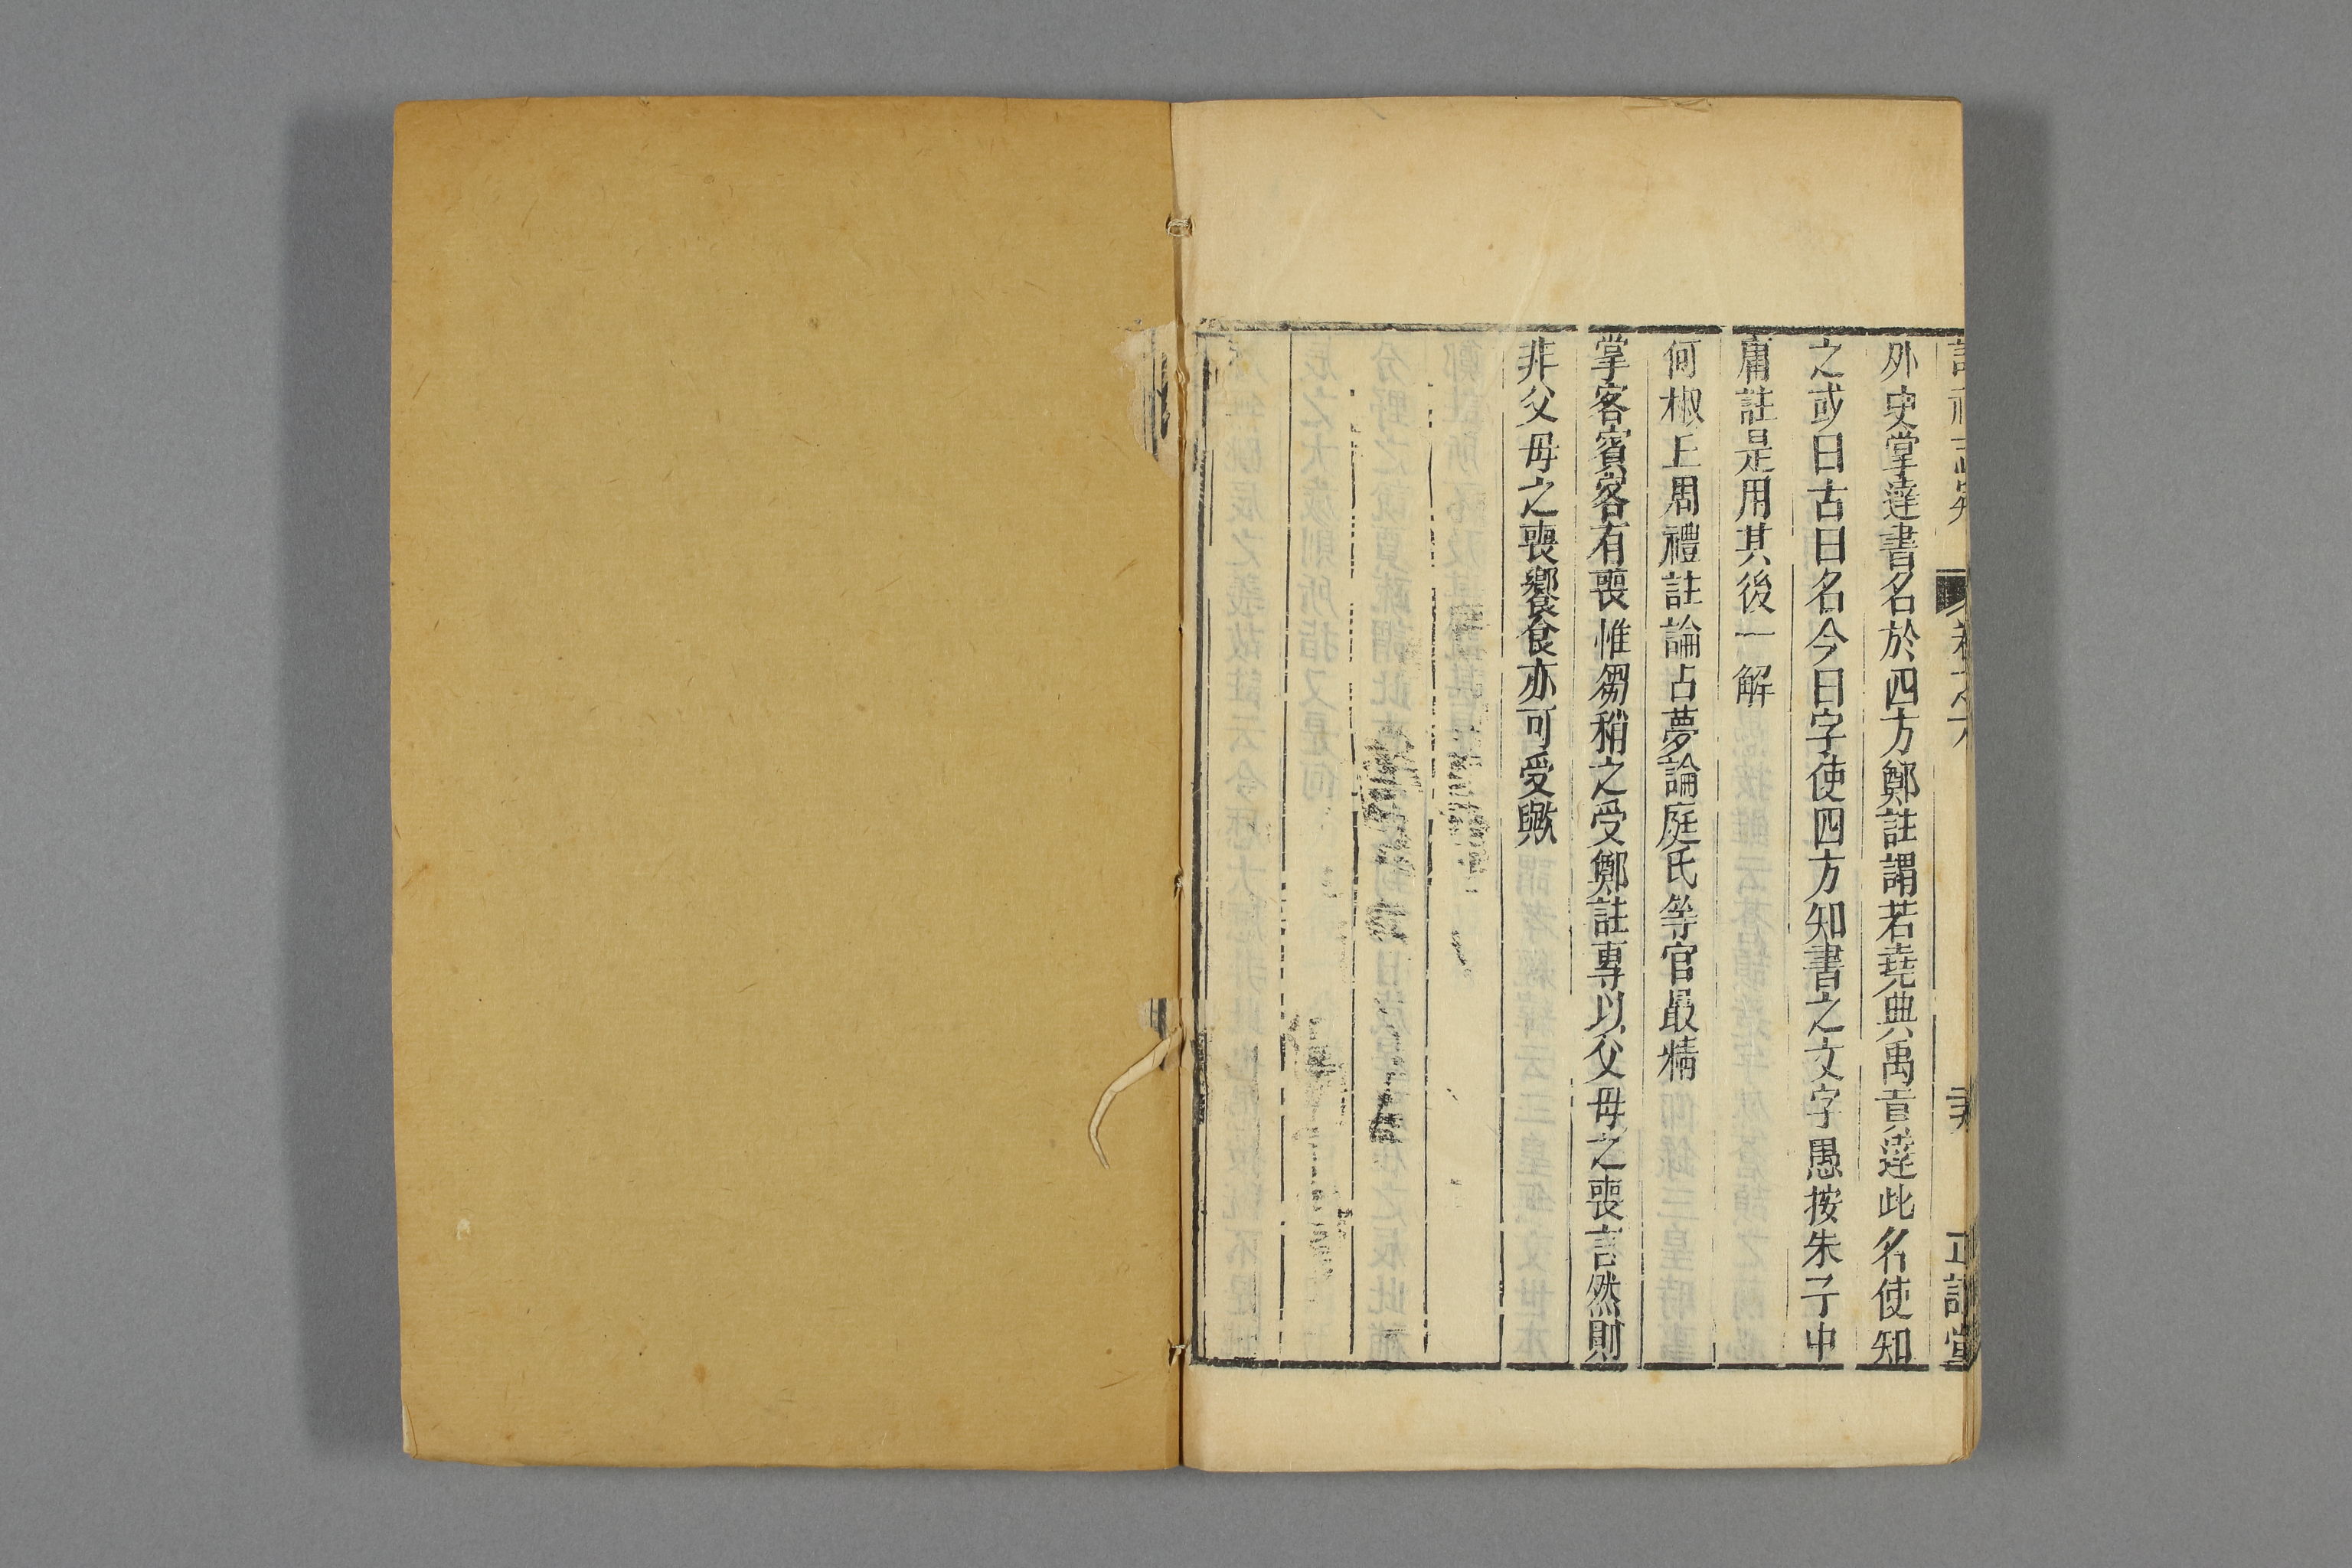 外史掌達書名於四方鄭註謂若堯典禹貢達此名使知
之或曰古曰名今曰字使四方知書之文字愚按朱子中
庸註是用其後一解
何椒丘周禮註論占夢論庭氏等官最精
掌客賓客有喪惟芻稍之受鄭註專以父母之喪言然則
非父母之喪饗食亦可受歟